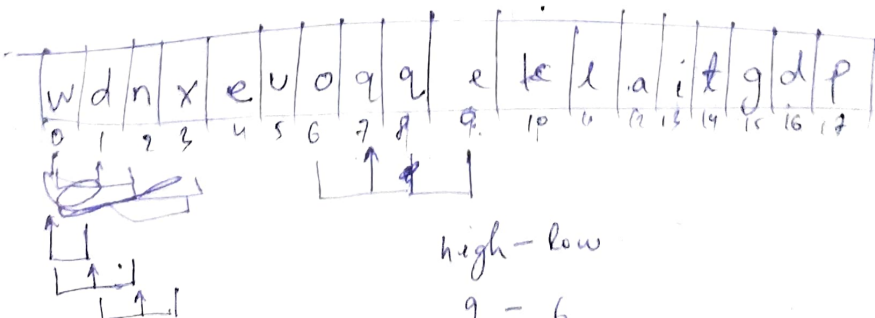 w d n x e u o q q e k l a i t g d p
0 1 2 3 4 5 6 7 8 9 10 11 12 13 14 15 16 17
high - low
9 - 6